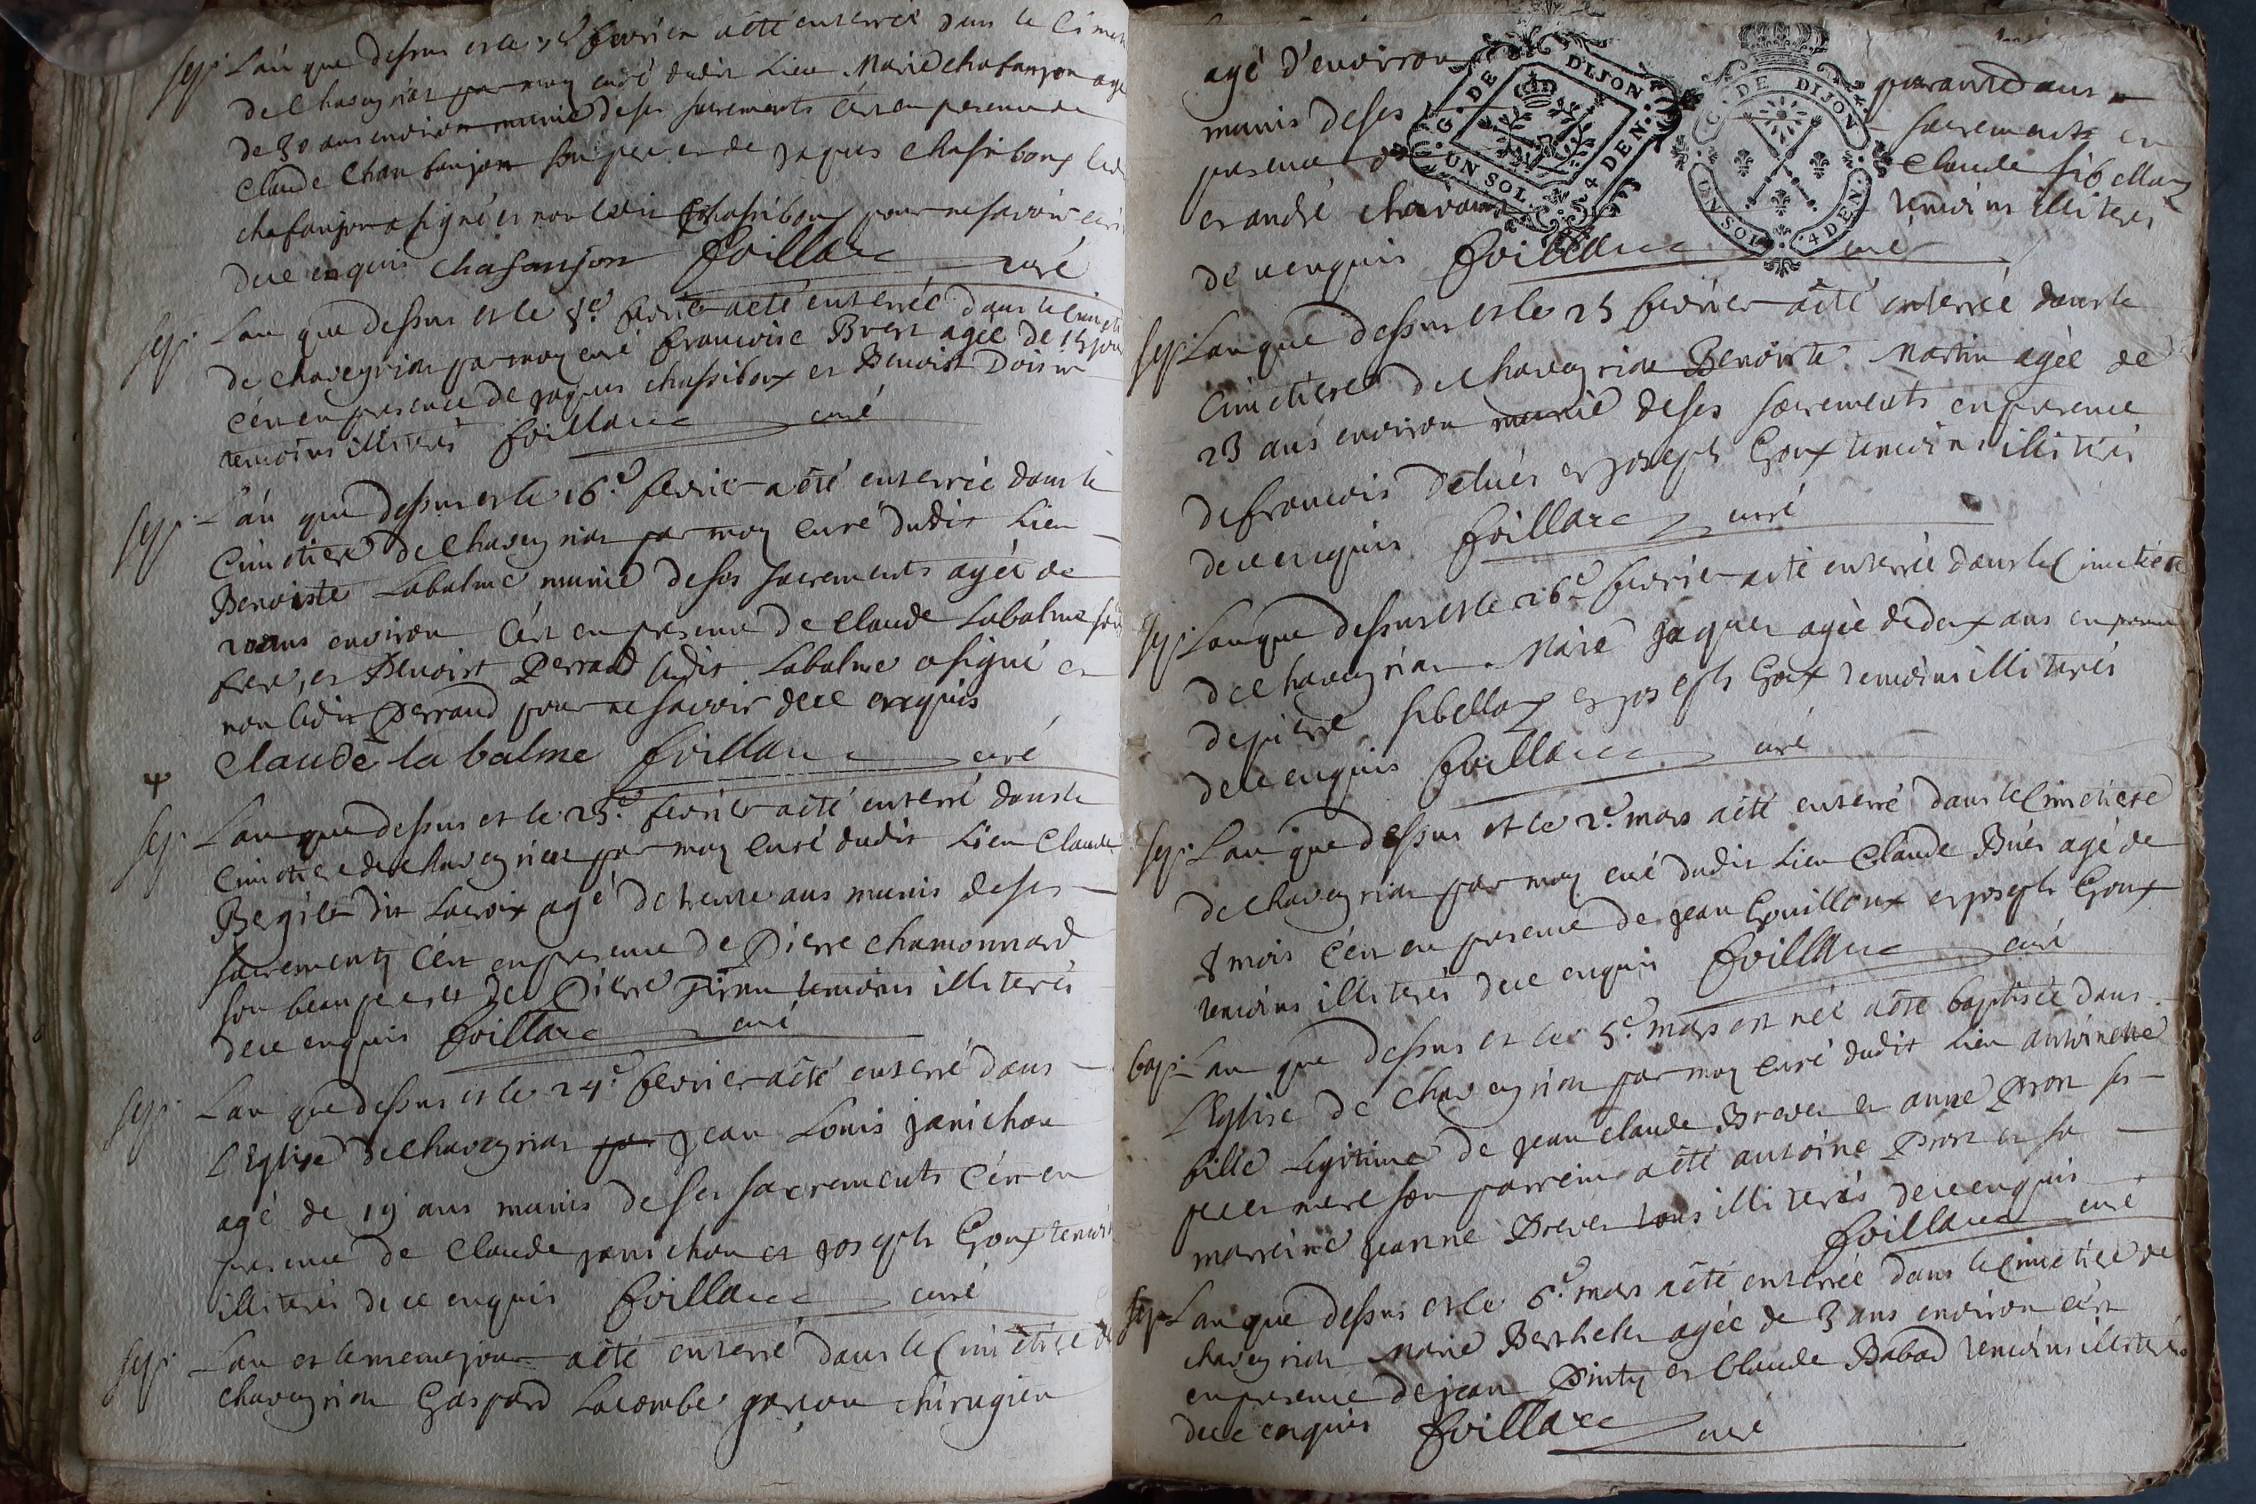 sep: L'an que dessus et le fevrier a été enterrée dans le cimet
de Chaveyriat par moy curé dudit Lieu Marie Chafanjon agé
de 30 ans environ munie de ses sacrements c'ét en presence de
Claude Chanfanjon son pere et de jaques Chassiboux ledi
chafanjon a signé et non ledit Chassiboux pour ne savoir
de ce enquis chafanjon foillare curé
sep: L'an que dessus et le 8e fevrier a été enterrée dans le cimeti
de chaveyriat par moy curé francoise Brest agée de 15 jour
c'ét en presence de jaques chassiboux et Benoist Doisin
temoins illiterés foillare curé
sep: L'an que dessus et le 16e fevrier a été enterrée dans le
Cimetiere de Chaveyriat par moy curé dudit Lieu
Benoiste Labalme munie de ses sacrements agée de
20 ans environ c'ét en presence de Claude Labalme son
frere, et Benoist Perraud ledit Labalme a signé et
non ledit Perraud pour ne savoir de ce enquis
Claude la balme foillare curé
sep: L'an que dessus et le 23e fevrier a été enterré dans le
Cimetiere de chaveyriat par moy curé dudit Lieu Claude
Bergier dit Lacroix agé de trente ans munis de ses
sacrements c'ét en presence de Pierre chamonnard
son beaupere et de Pierre temoins illiterés
de ce enquis foillare curé
sep: L'an que dessus et le 24e fevrier a été enterré dans
l'Eglise de chaveyriat par jean Louis janichon
agé de 19 ans munis de ses sacrements c'ét en
presence de Claude janichon et joseph Goux temoin
illiterés de ce enquis foillare curé
sep: L'an et le meme jour a été enterré dans le Cimetiere de
chaveyriat Gaspard Lacombe garcon chirugien
agé d'environ quarante ans
munis de ses sacrements en
presence de Claude sibellas
et andré chavan temoins illiterés
de ce enquis foillare curé
G. DE DIJON UN SOL. 4 DEN.
G. DE DIJON UN SOL 4 DEN.
sep: L'an que dessus et le 25 fevrier a été enterrée dans le
Cimetiere de chaveyriat Benoiste Martin agée de
23 ans environ munie de ses sacrements en presence
de francois Delués et joseph Goux temoins illiterés
de ce enquis foillare curé
sep: L'an que dessus et le 26e fevrier a été enterrée dans le Cimetiere
de chaveyriat Marie jaquet agée de deux ans en presence
de pierre sibellas et joseph Goux temoins illiterés
de ce enquis foillare curé
sep: L'an que dessus et le 2e mars a été enterré dans le Cimetiere
de chaveyriat par moy curé dudit Lieu Claude Buer agé de
8 mois c'ét en presence de jean Gouilloux et joseph Goux
temoins illiterés de ce enquis foillare curé
bap: L'an que dessus et le 5e mars est née a été baptisée dans
l'Eglise de Chaveyriat par moy curé dudit Lieu antoinette
fille Legitime de jean claude Brever et anne Pron ses
pere et mere son parrein a été antoine Pron et sa
marreine jeanne Brever tous illiterés de ce enquis
foillare curé
sep: L'an que dessus et le 6e mars a été enterrée dans le Cimetiere de
chaveyriat Marie Berthelet agée de 3 ans environ c'ét
en presence de jean Pinty et Claude Babad temoins illiterés
de ce enquis foillare curé